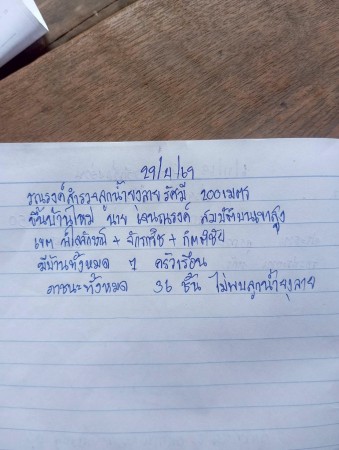 29/ม/69
รณรงค์สำรวจลูกน้ำยุงลาย รัศมี 200 เมตร
ขึ้นบ้านใหม่ นาย เจนณรงค์ สมบัติบานเขาสูง
เขต + จักรกริช +
มีบ้านทั้งหมด 7 ครัวเรือน
ภาชนะทั้งหมด 36 ชิ้น ไม่พบลูกน้ำยุงลาย